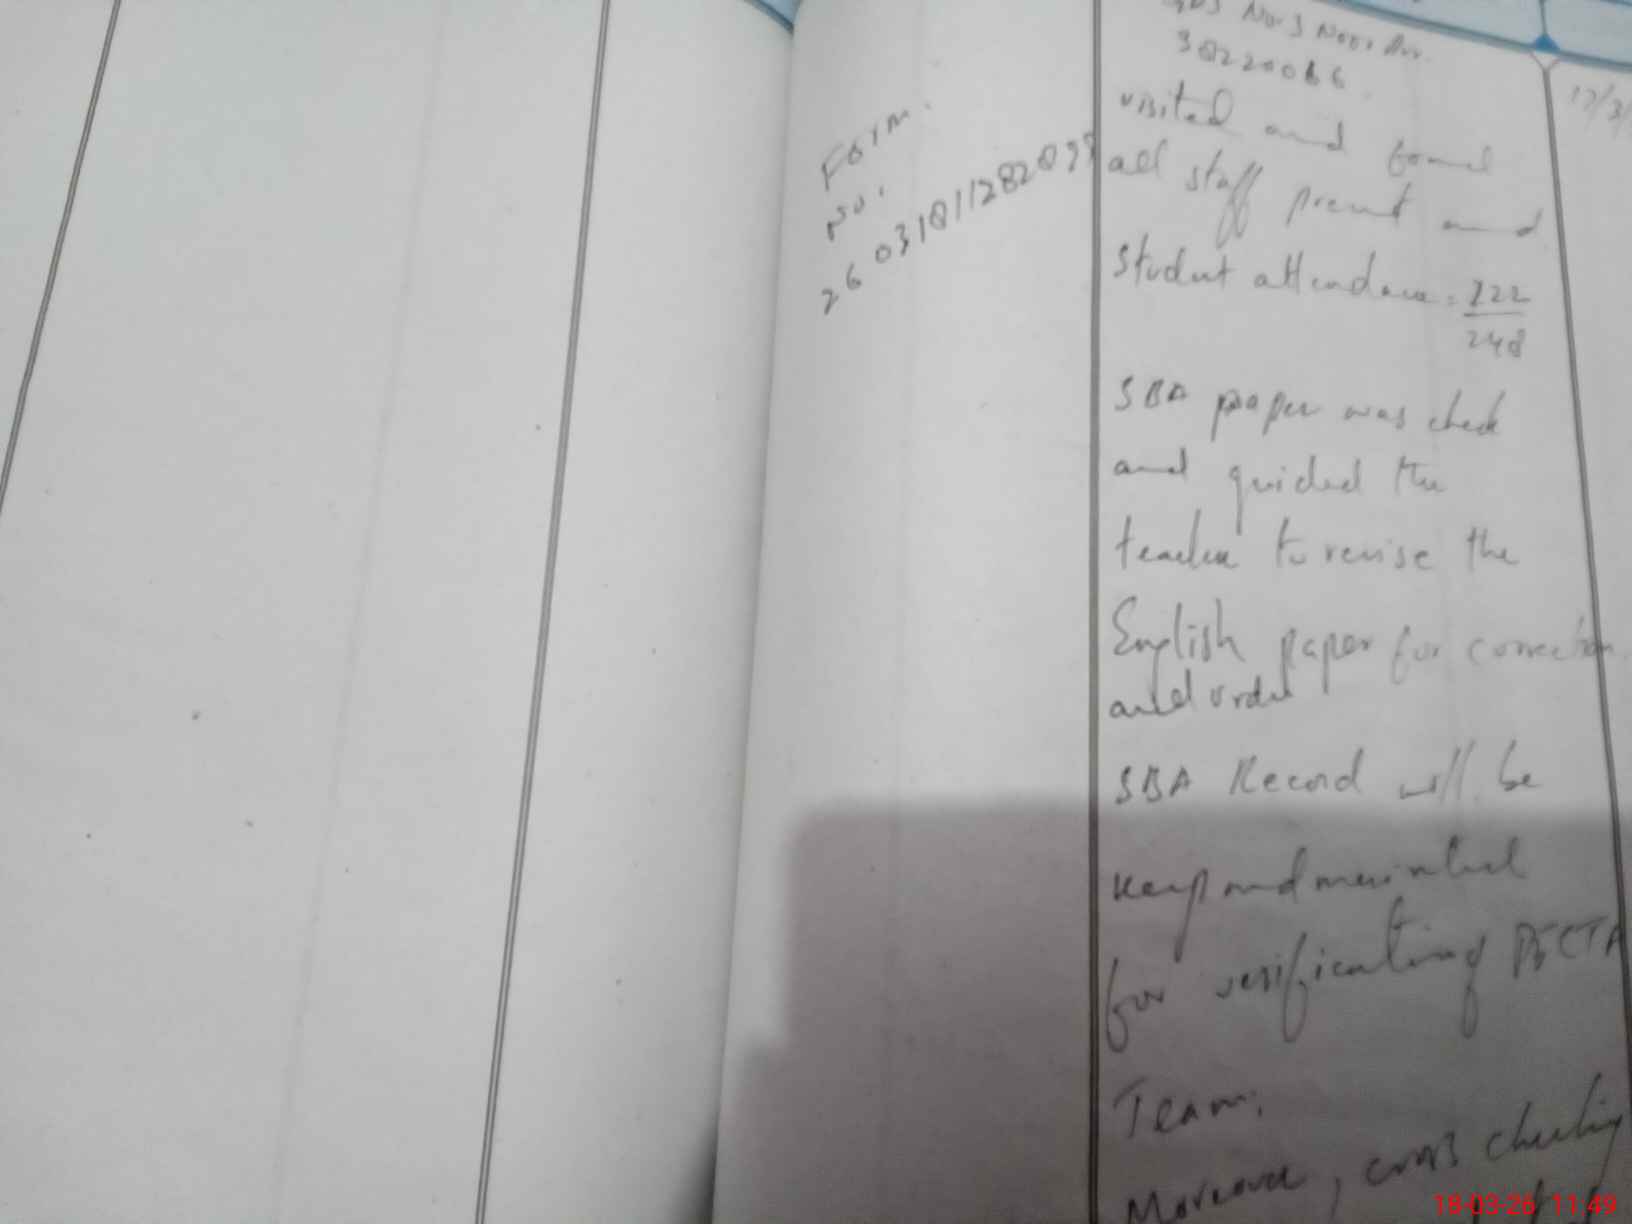 Form.
No.
26 0318112820
No. 3
visited and found
all staff present and
student attendance: 222
248
SBA paper was check
and guided the
teacher to revise the
English paper for correction
and order
SBA Record will be
Keep and
for verification of PECTA
Team.
Moreover, cross checking
17/3/
18-03-26 11:49